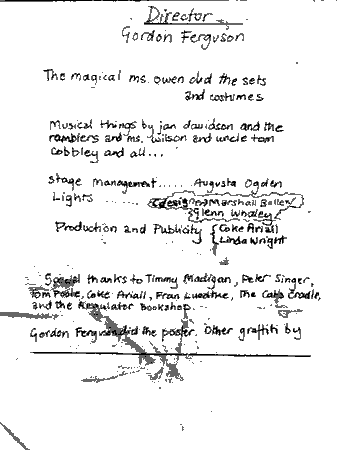 Director
Gordon Ferguson
The magical ms. owen did the sets
and costumes
Musical things by jan davidson and the
ramblers and ms. wilson and uncle tom
cobbley and all...
Stage management...... Augusta Ogden
Lights ........ (design) Marshall Botley
Glenn Whaley
Production and Publicity { Coke Ariail
Linda Wright
Special thanks to Timmy Madigan, Peter Singer,
Tom Poole, Coke Ariail, Fran The Cat's Cradle,
and the Regulator Bookshop...
Gordon Ferguson did the poster. Other graffiti by